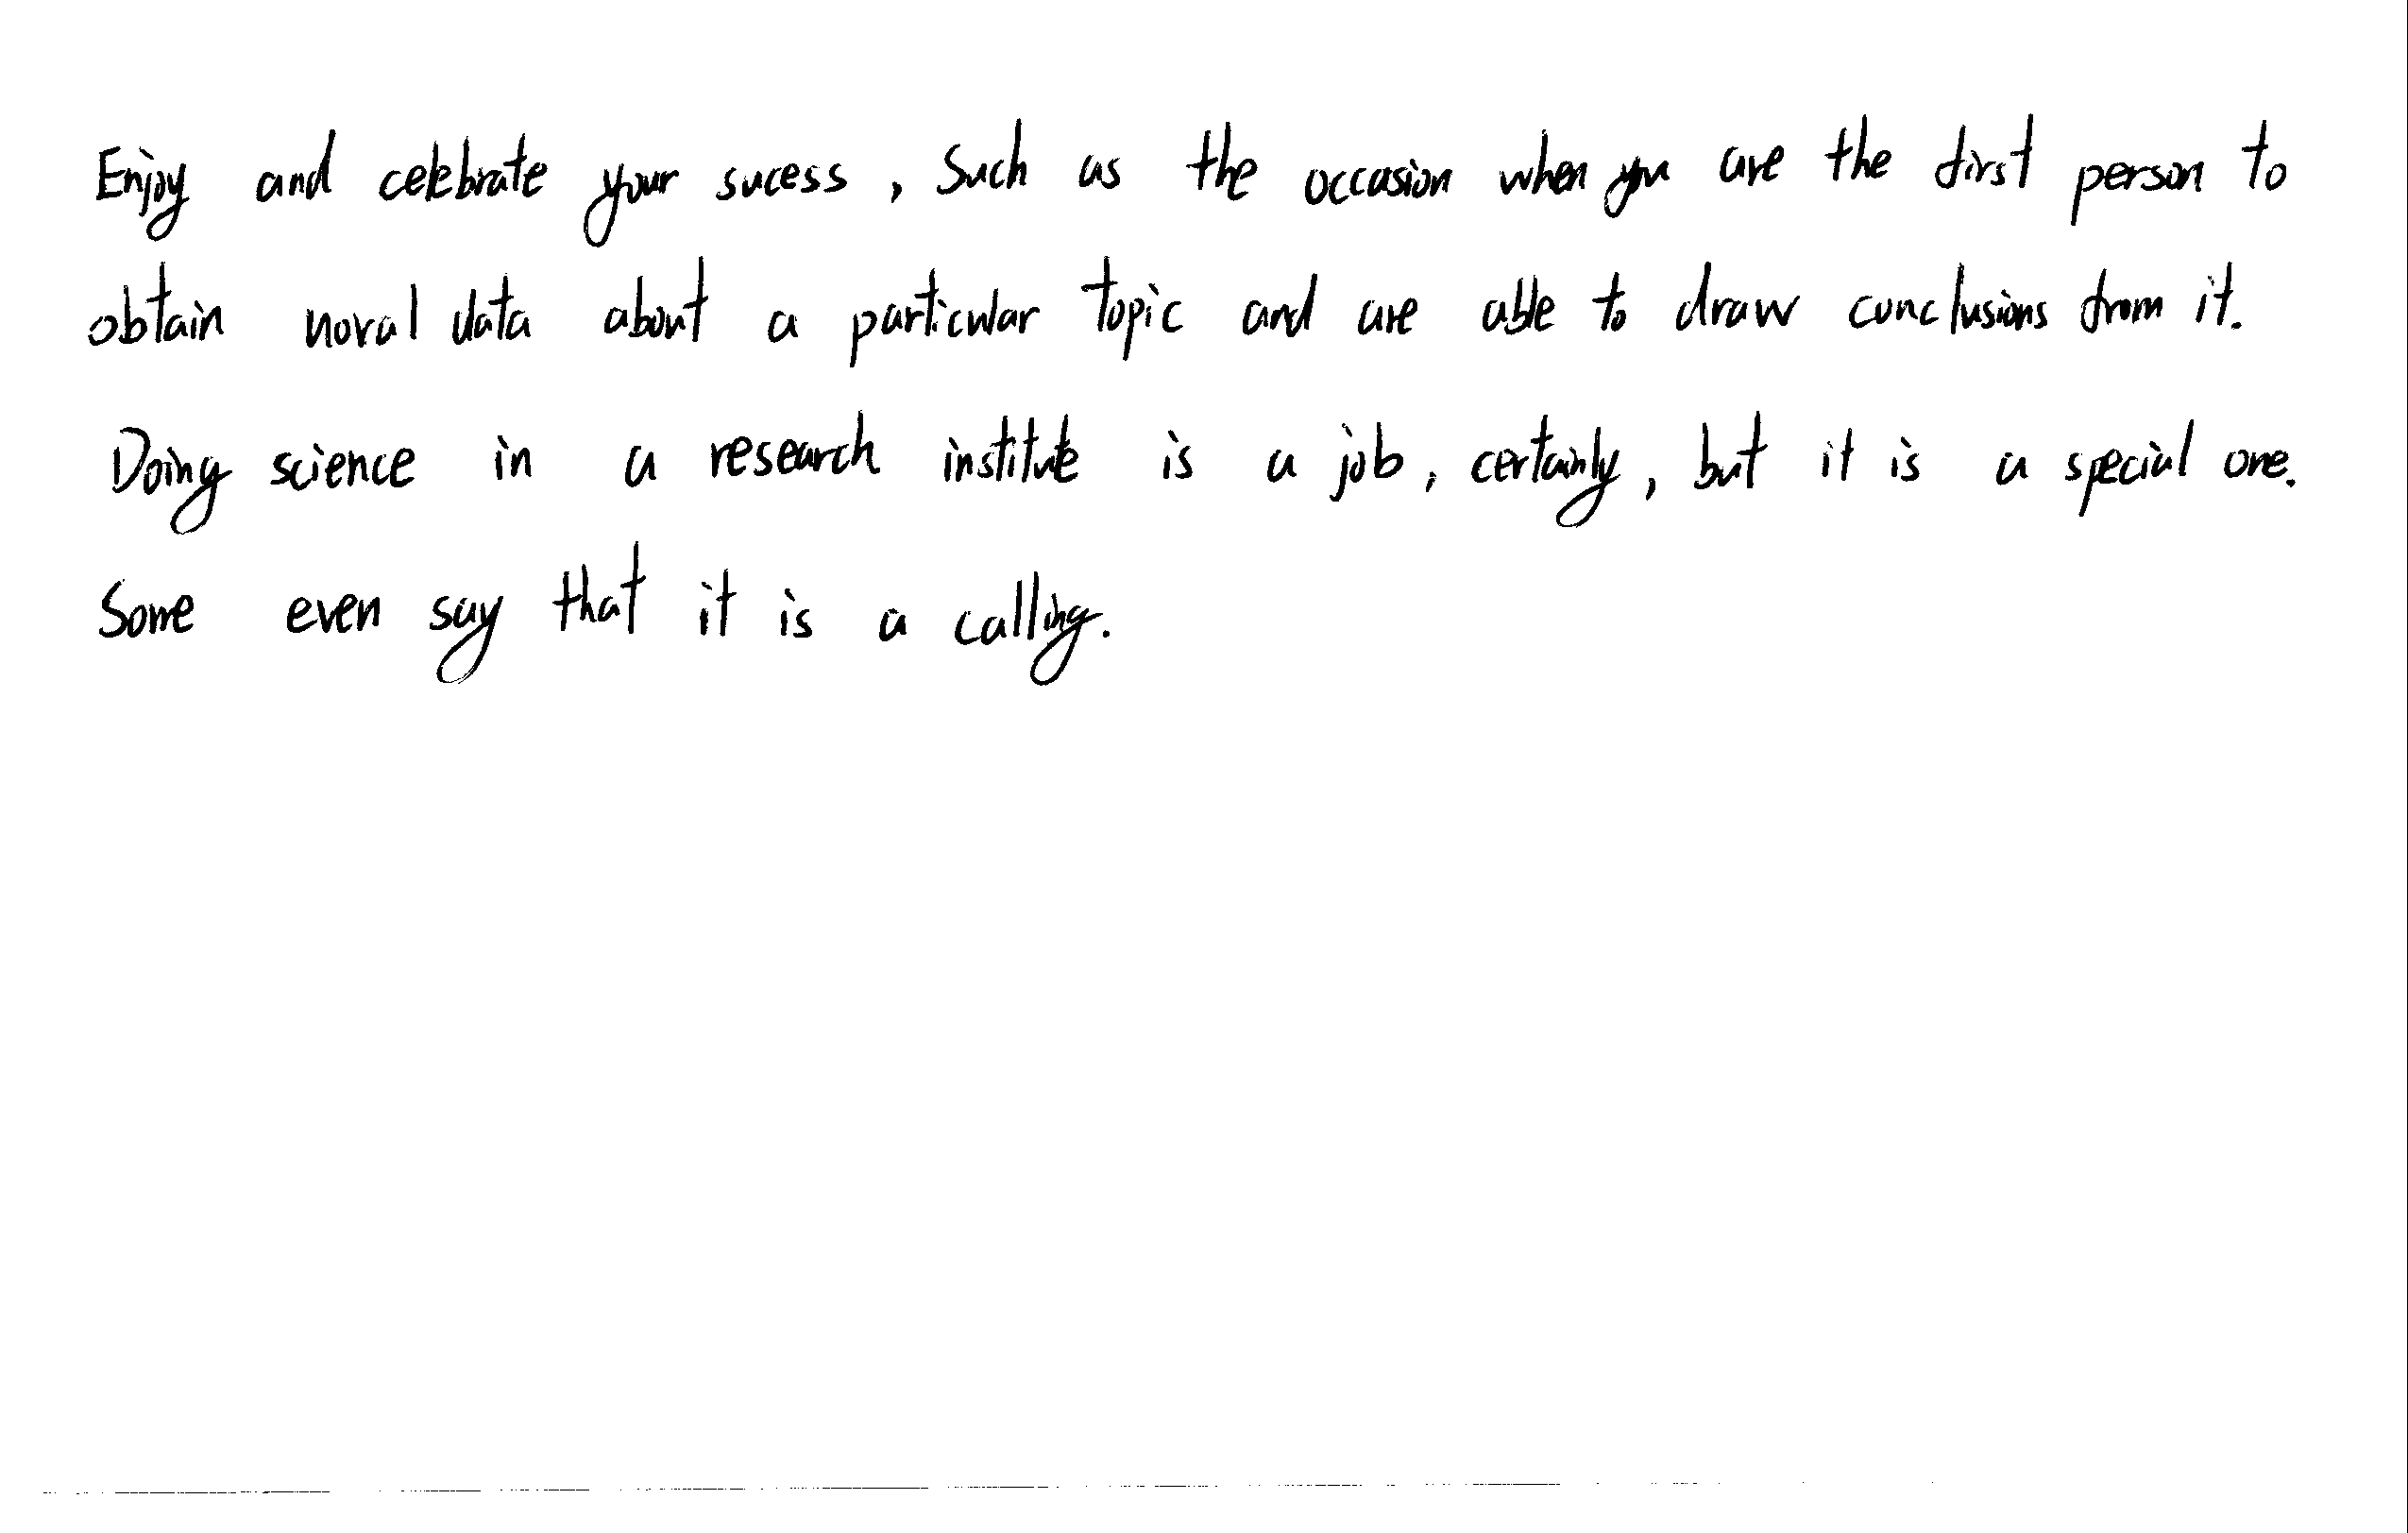 Enjoy and celebrate your sucess, Such as the occasion when you are the first person to
obtain noval data about a particular topic and are able to draw conclusions from it.
Doing science in a research institute is a job, certainly, but it is a special one.
Some even say that it is a calling.